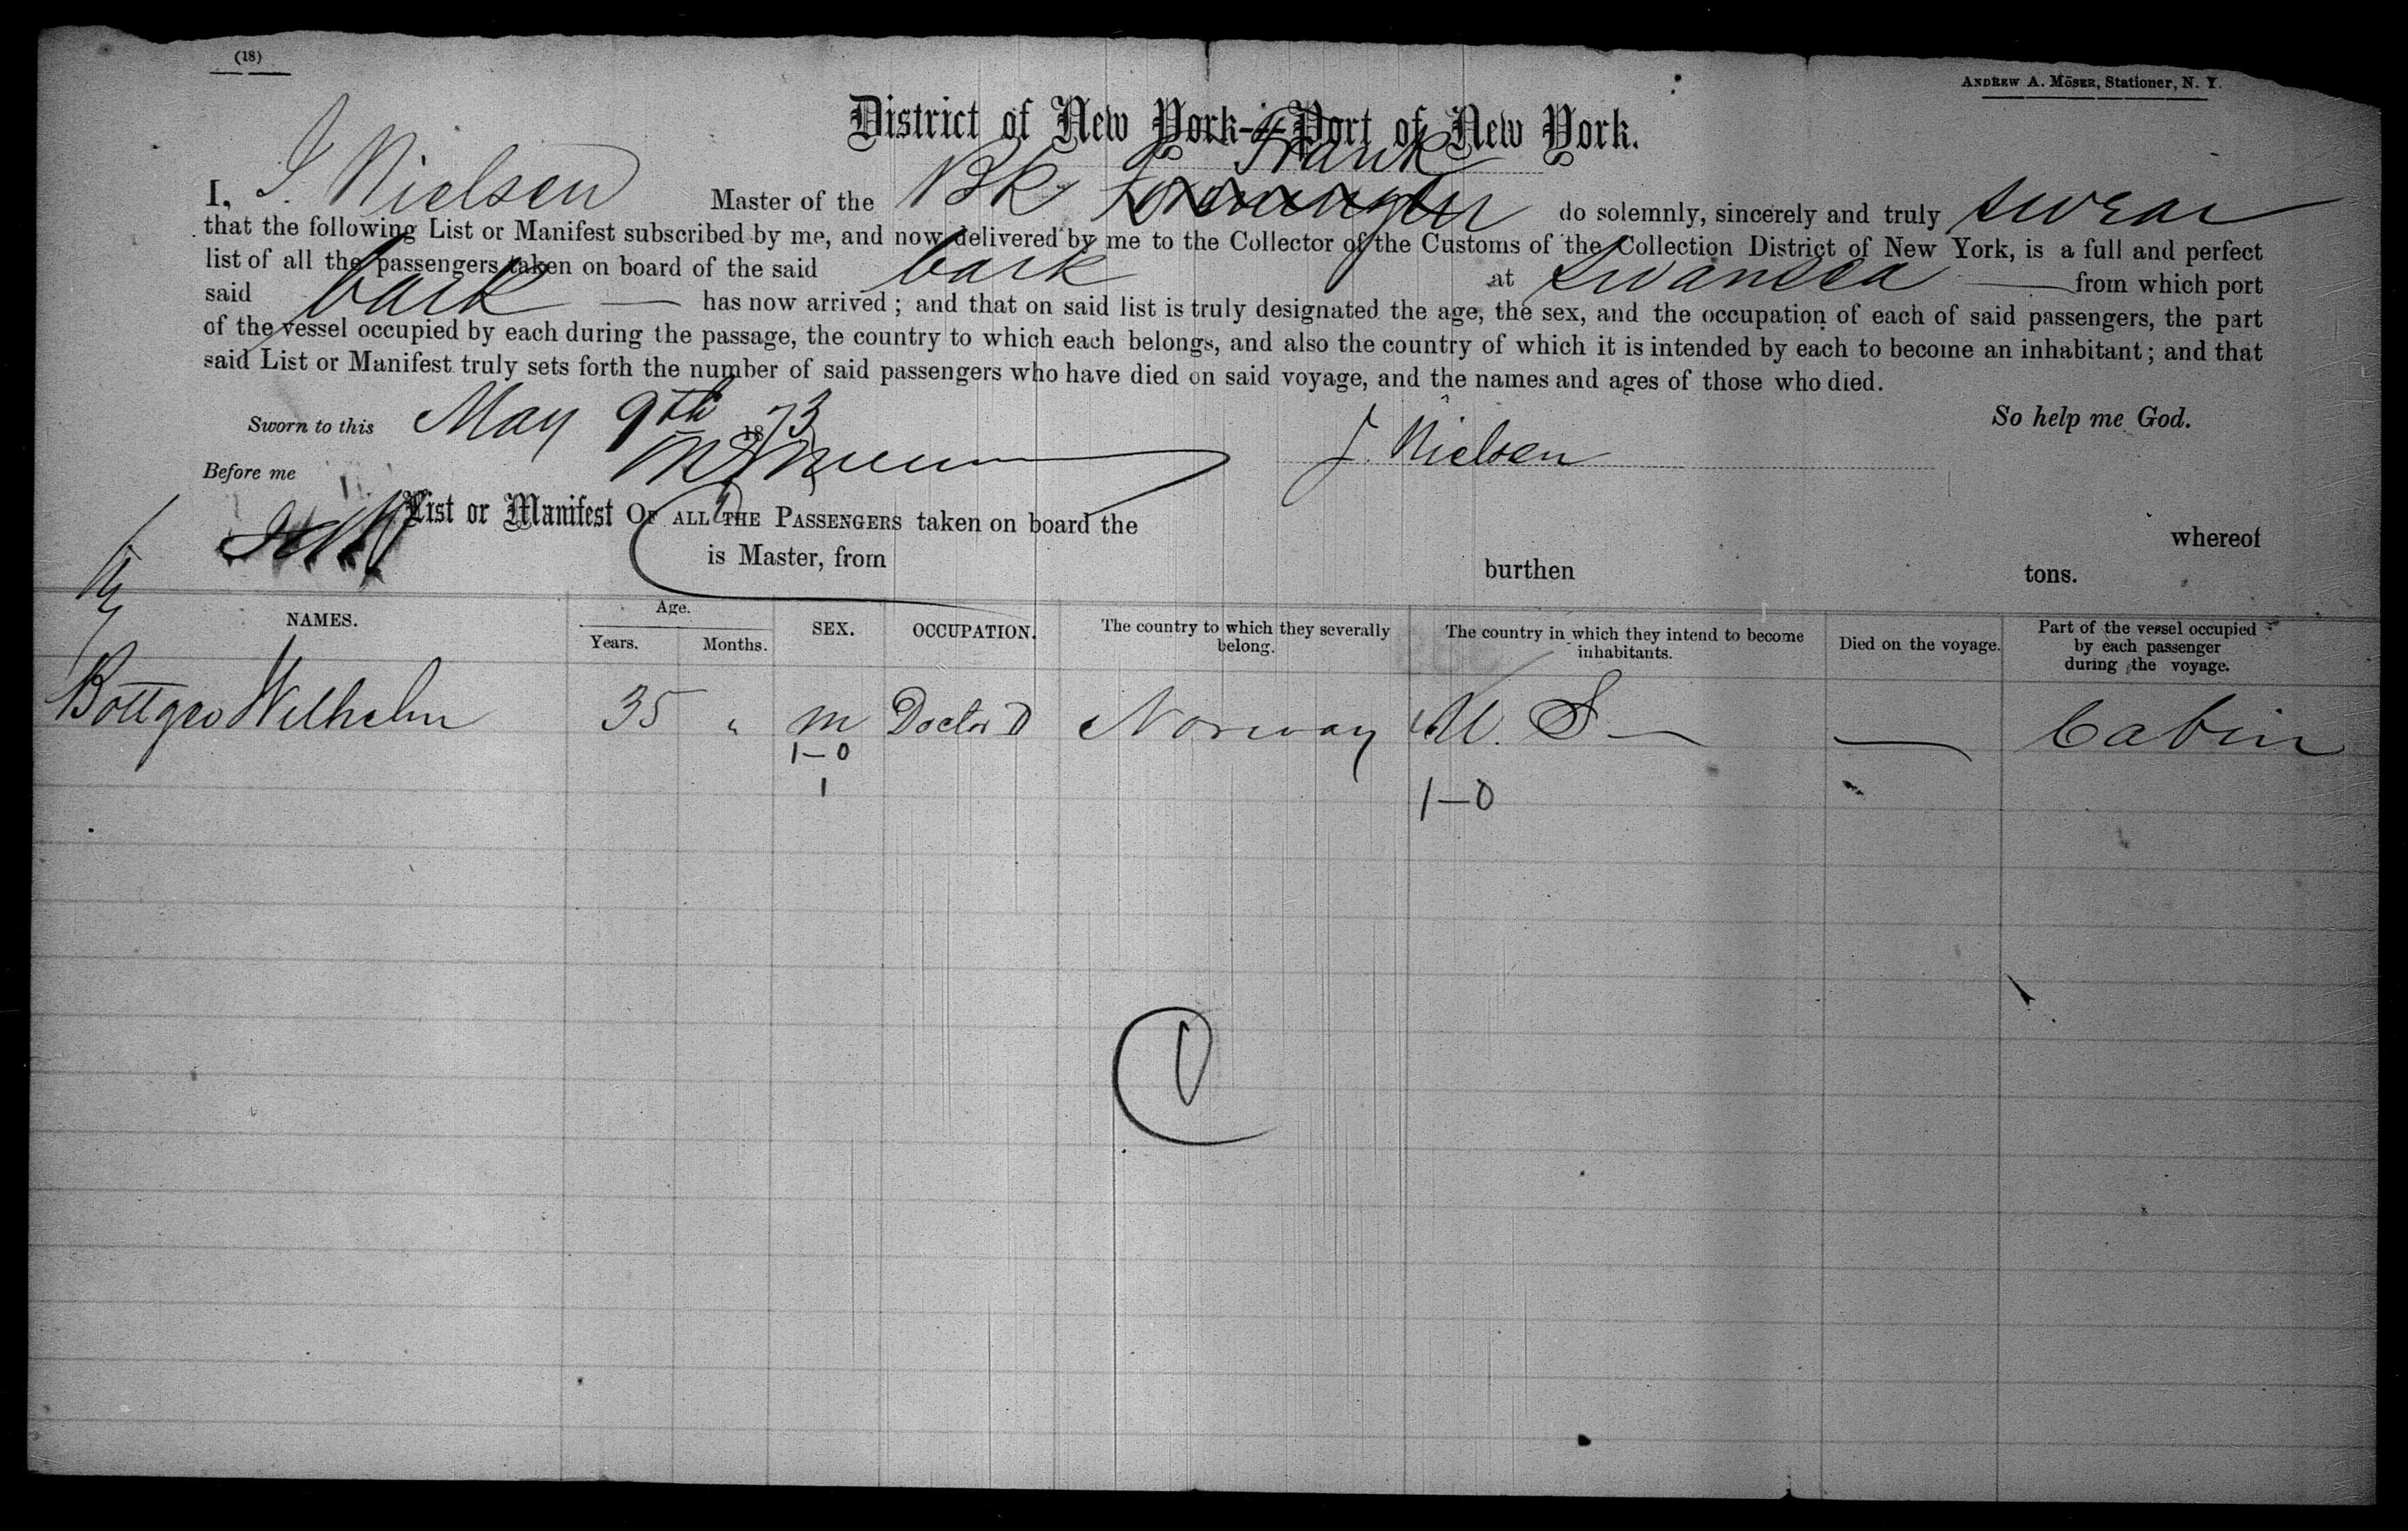 (18)
ANDREW A. MÖSER, Stationer, N. Y.
District of New York-Port of New York.
Frank
I, J. Nielsen Master of the Bk do solemnly, sincerely and truly swear
that the following List or Manifest subscribed by me, and now delivered by me to the Collector of the Customs of the Collection District of New York, is a full and perfect
list of all the passengers taken on board of the said bark at Swansea from which port
said bark has now arrived; and that on said list is truly designated the age, the sex, and the occupation of each of said passengers, the part
of the vessel occupied by each during the passage, the country to which each belongs, and also the country of which it is intended by each to become an inhabitant; and that
said List or Manifest truly sets forth the number of said passengers who have died on said voyage, and the names and ages of those who died.
Sworn to this May 9th 1873 So help me God.
Before me J. Nielsen
List or Manifest OF ALL THE PASSENGERS taken on board the whereof
is Master, from burthen tons.
NAMES. Age. Years. Months. SEX. OCCUPATION. The country to which they severally belong. The country in which they intend to become inhabitants. Died on the voyage. Part of the vessel occupied by each passenger during the voyage.
Wilhelm 35 " m Doctor Norway U. S — — Cabin
1—0
1 1—0